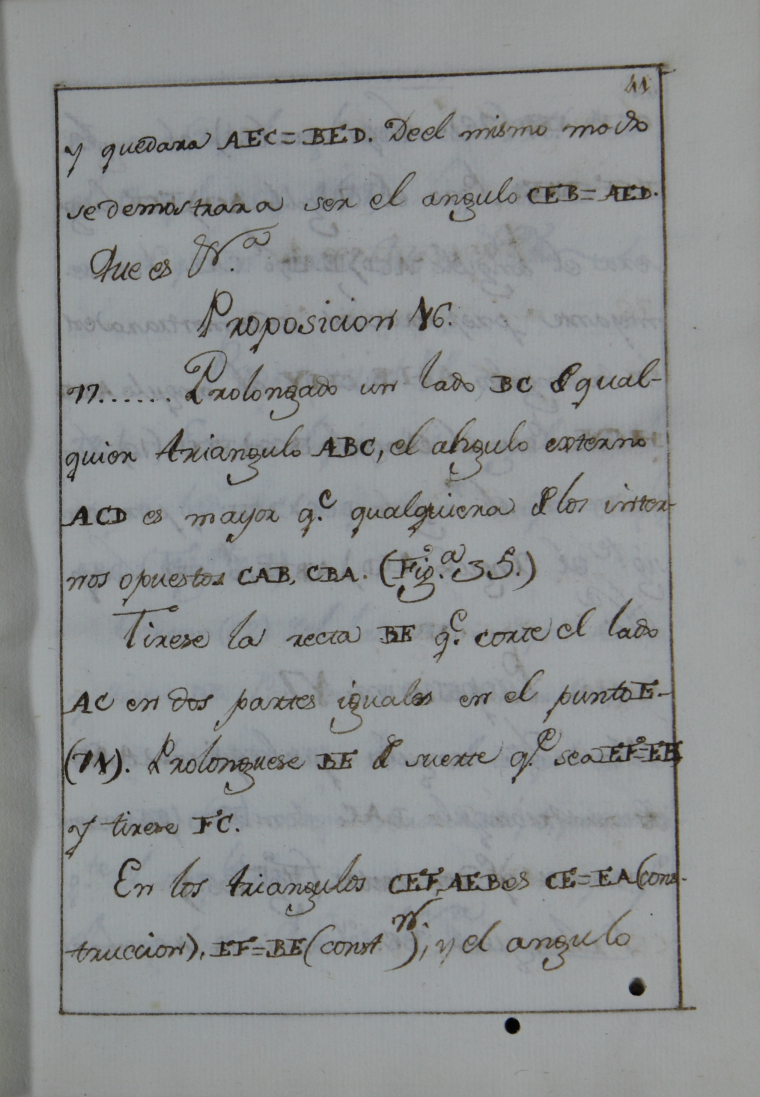 41
y quedara AEC=BED. Deel mismo modo
se demostrara ser el angulo CEB=AED.
Que es
Proposicion 16.
77...... Prolongado un lado BC d qual-
quier triangulo ABC, el angulo externo
ACD es mayor q.e qualquiera d los inter-
nos opuestos CAB, CBA. (Fig.a 35.)
Tirese la recta BE q.e corte el lado
AC en dos partes iguales en el punto E.
(71). Prolonguese BE d suerte q.e sea EF=EB
y tirese FC.
En los triangulos CEF, AEB es CE=EA (cons-
truccion), EF=BE (const.n), y el angulo